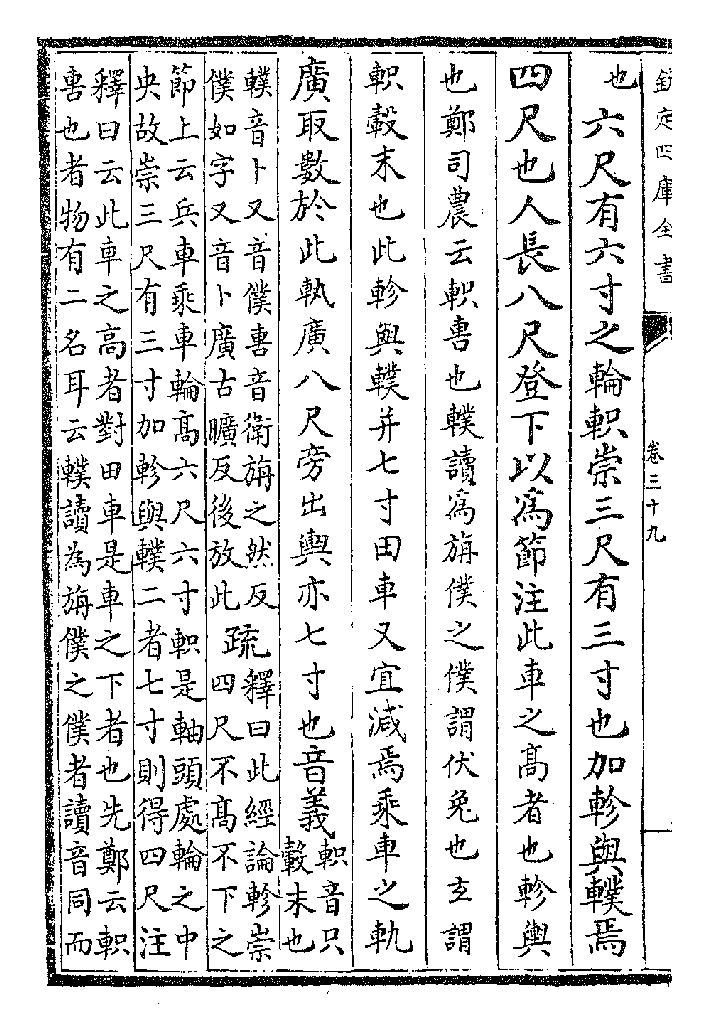 欽定四庫全書　卷三十九
也六尺有六寸之輪軹崇三尺有三寸也加軫與轐焉
四尺也人長八尺登下以爲節注此車之髙者也軫輿
也鄭司農云軹軎也轐讀爲旃僕之僕謂伏兔也玄謂
軹轂末也此軫與轐并七寸田車又宜減焉乘車之軌
廣取數於此軌廣八尺旁出輿亦七寸也音義
軹音只
轂末也
轐音卜又音僕軎音衛旃之然反
僕如字又音卜廣古曠反後放此
疏
釋曰此經論軫崇
四尺不髙不下之
節上云兵車乘車輪髙六尺六寸軹是軸頭處輪之中
央故崇三尺有三寸加軫與轐二者七寸則得四尺注
釋曰云此車之髙者對田車是車之下者也先鄭云軹
軎也者物有二名耳云轐讀為旃僕之僕者讀音同而